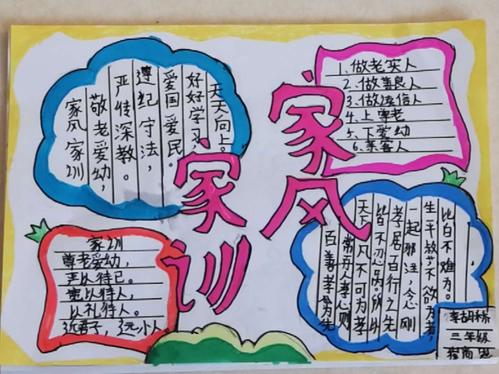 家风
家训
天天向上
好好学习
爱国爱民。
遵纪守法，
严传深教。
敬老爱幼，
家风家训
1.做老实人
2.做善良人
3.做诚信人
4.上尊老
5.下爱幼
6.亲客人
家训
尊老爱幼，
严以待己。
宽以待人，
以礼待人。
近君子，远小人
不难为。
生平
不欲为者，
一起邪
孝居百行之先
皆不忍为，所以
天下凡不可为者
常存仁孝心则
百善孝为先
三年级